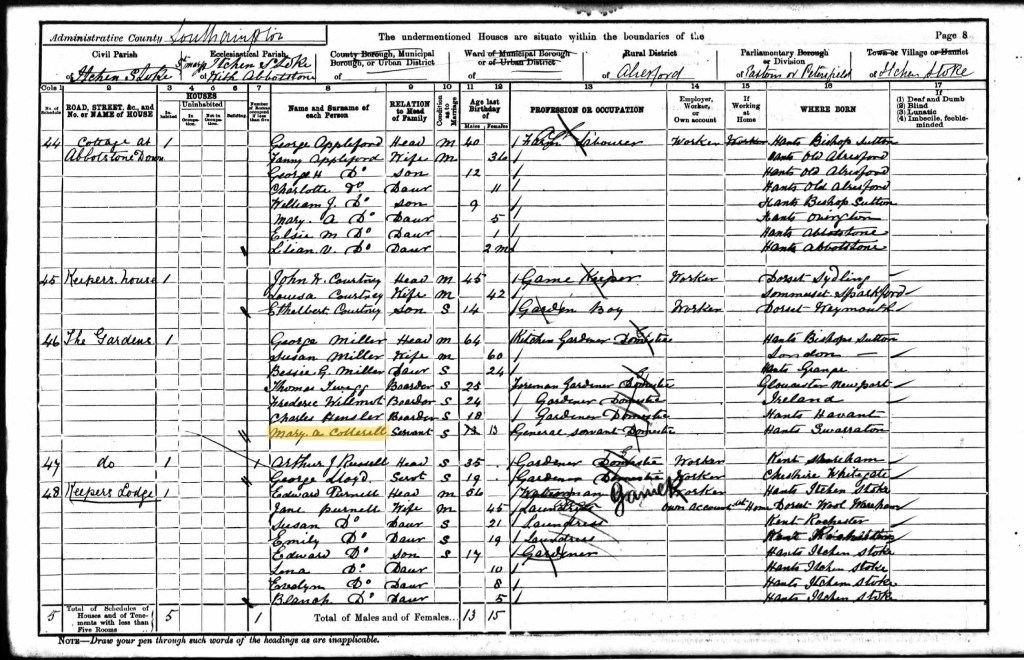 Administrative County Southampton The undermentioned Houses are situate within the boundaries of the Page 8
Civil Parish Ecclesiastical Parish County Borough, Municipal Borough, or Urban District Ward of Municipal Borough or of Urban District Rural District Parliamentary Borough or Division Town or Village or Hamlet
of Itchen Stoke of St Mary Itchen Stoke with Abbotstone of of Alresford of of Itchen Stoke
Cols 1 2 3 4 5 6 7 8 9 10 11 12 13 14 15 16 17
No. of Schedule ROAD, STREET, &c., and No. or NAME of HOUSE HOUSES In-habited Uninhabited In Occupa-tion. Not in Occupa-tion. Building Name and Surname of each Person RELATION to Head of Family Condition as to Marriage Age last Birthday of Males Females PROFESSION OR OCCUPATION Employer, Worker, or Own account If Working at Home WHERE BORN If (1) Deaf and Dumb (2) Blind (3) Lunatic (4) Imbecile, feeble-minded
44 Cottage at 1 George Appleford Head M 40 Farm Labourer Worker Worker Hants Bishop Sutton
Abbotstone Down Fanny Appleford Wife M 36 Hants Old Alresford
George H Do Son 12 Hants Old Alresford
Charlotte Do Daur 11 Hants Old Alresford
William J. Do Son 9 Hants Bishop Sutton
Mary A Do Daur 5 Hants Ovington
Elsie M Do Daur 1 Hants Abbotstone
Lilian V. Do Daur 2 m Hants Abbotstone
45 Keepers house 1 John W. Courtney Head M 45 Game Keeper Worker Dorset Sydling
Louesa Courtney Wife M 42 Sommerset Sparkford
Ethelbert Courtney Son S 14 Garden Boy Worker Dorset Waymouth
46 The Gardens 1 George Miller Head M 64 Kitchen Gardener Domestic Hants Bishops Sutton
Susan Miller Wife M 60 London
Bessie G. Miller Daur S 24 Hants Grange
Thomas Twegg Boarder S 25 Foreman Gardener Domestic Gloucester Newport
Frederic Willmot Boarder S 24 Gardener Domestic Ireland
Charles Hensler Boarder S 18 Gardener Domestic Hants Havant
Mary A Cotterell Servant S 13 13 General servant Domestic Hants Swarraton
47 do 1 Arthur J Russell Head S 35 Gardener Domestic Worker Kent Shoreham
George Lloyd Servt S 19 Gardener Domestic Worker Cheshire Whitegate
48 Keepers Lodge 1 Edward Purnell Head M 56 Gamek Worker Hants Itchen Stoke
Jane Purnell Wife M 45 Laundress Own account at Home Dorset Wool Wareham
Susan Do Daur S 21 Laundress Kent Rochester
Emily Do Daur S 19 Laundress Kent
Edward Do Son S 17 Gardener Hants Itchen Stoke
Lena Do Daur 10 Hants Itchen Stoke
Evelyn Do Daur 8 Hants Itchen Stoke
Blanch Do Daur 5 Hants Itchen Stoke
5 Total of Schedules of Houses and of Tene-ments with less than Five Rooms 5 1 Total of Males and of Females... 13 15
NOTE—Draw your pen through such words of the headings as are inapplicable.